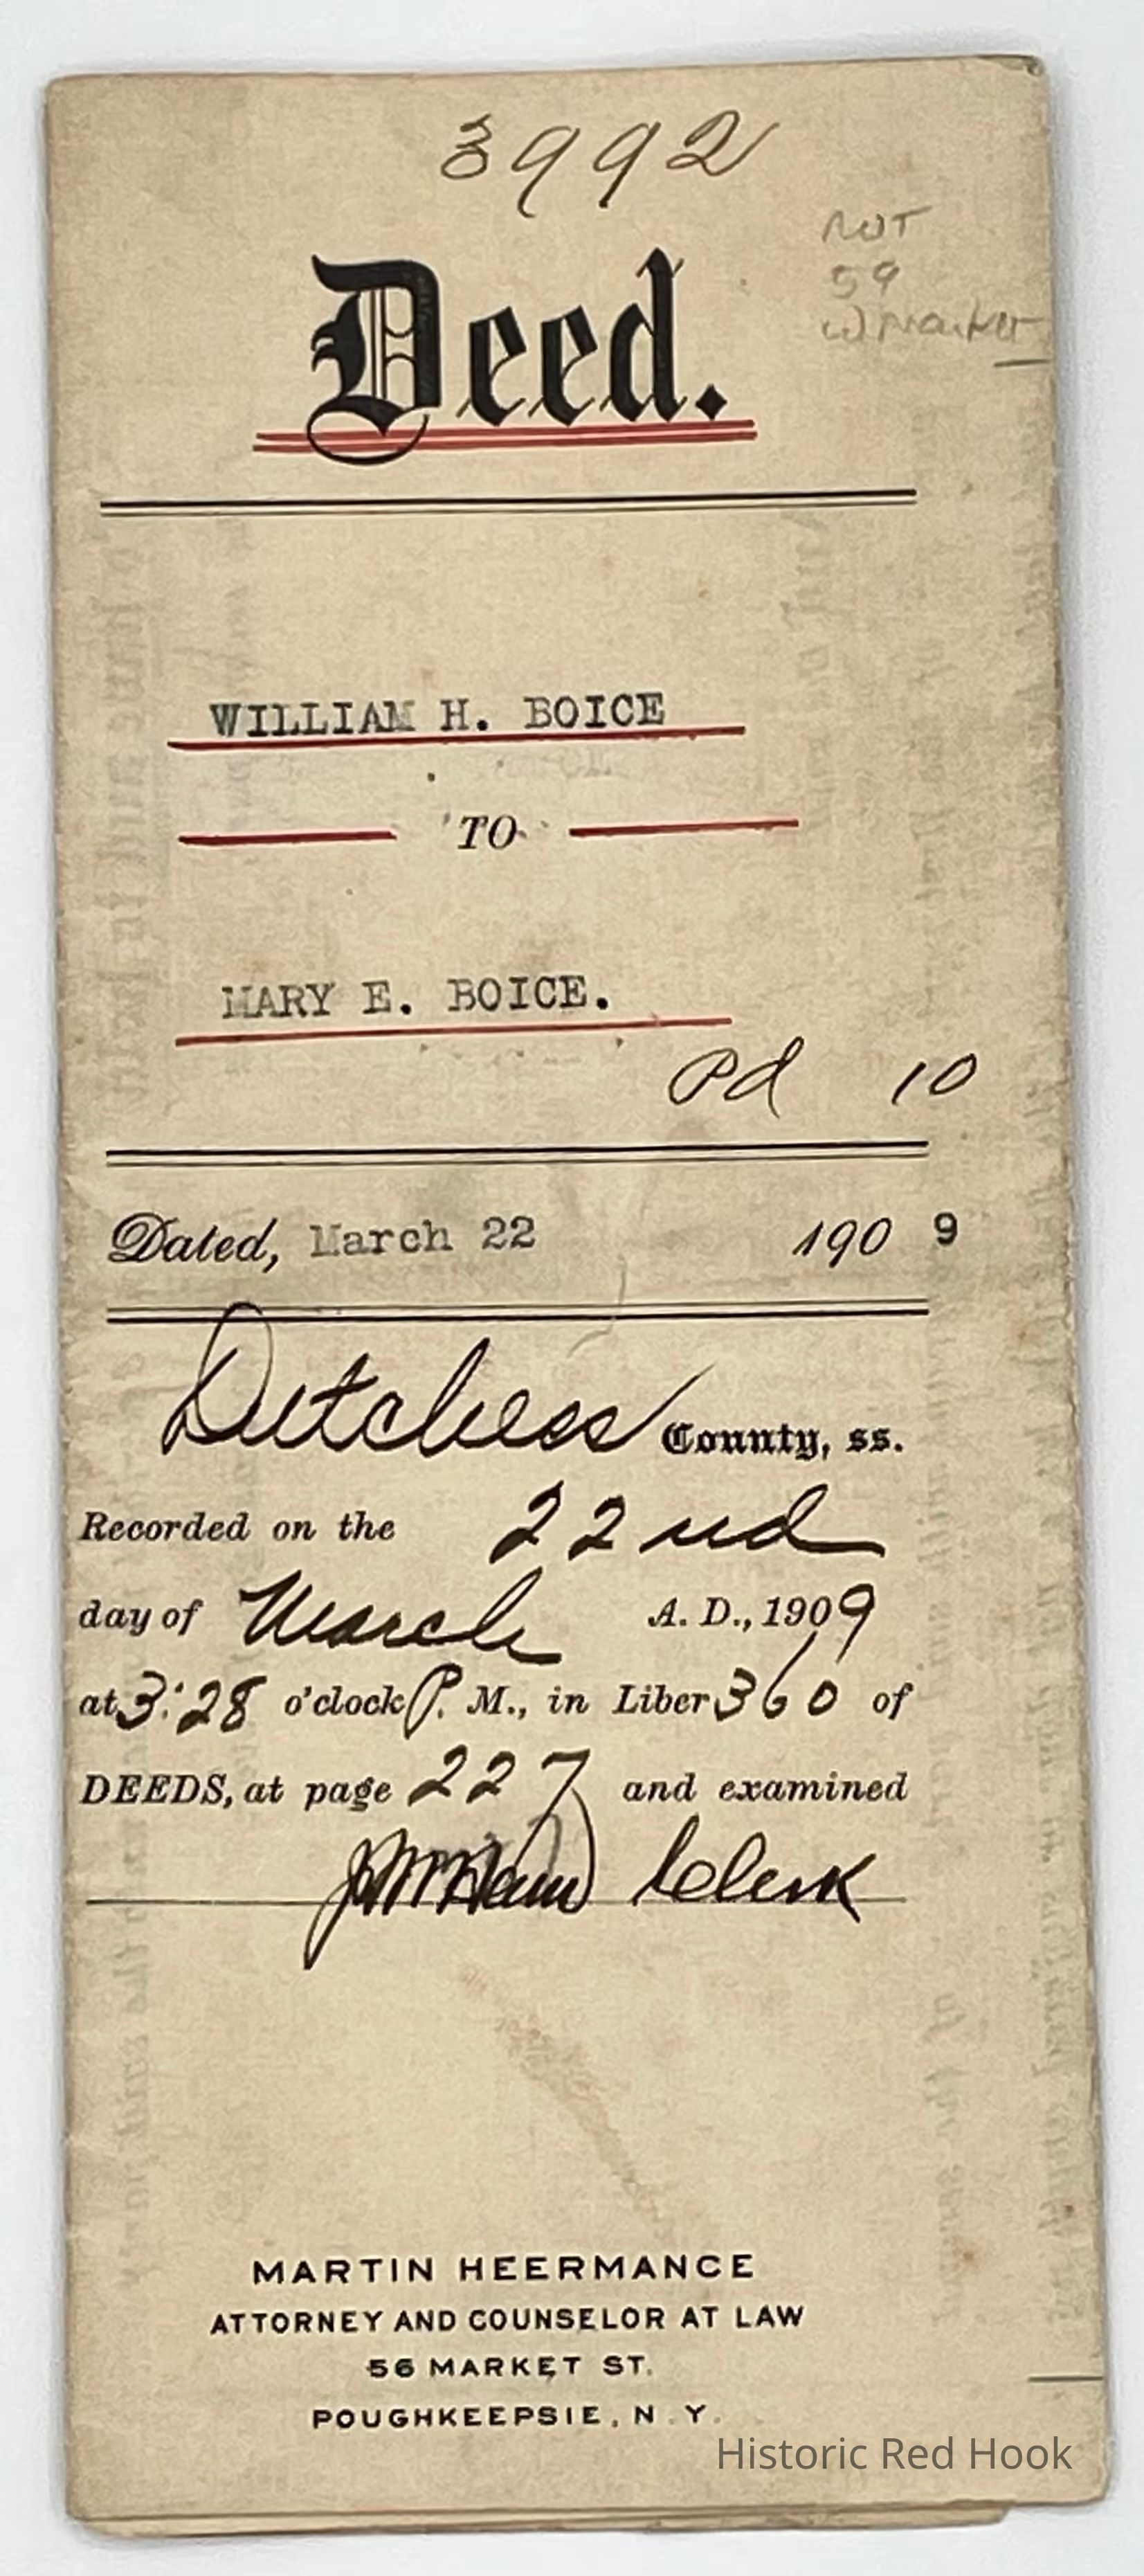 3992
NOT
59
W Market
Deed.
WILLIAM H. BOICE
TO
MARY E. BOICE.
Pd 10
Dated, March 22 1909
Dutchess County, ss.
Recorded on the 22nd
day of March A. D., 1909
at 3:28 o'clock P. M., in Liber 360 of
DEEDS, at page 227 and examined
Clerk
MARTIN HEERMANCE
ATTORNEY AND COUNSELOR AT LAW
56 MARKET ST.
POUGHKEEPSIE, N. Y.
Historic Red Hook